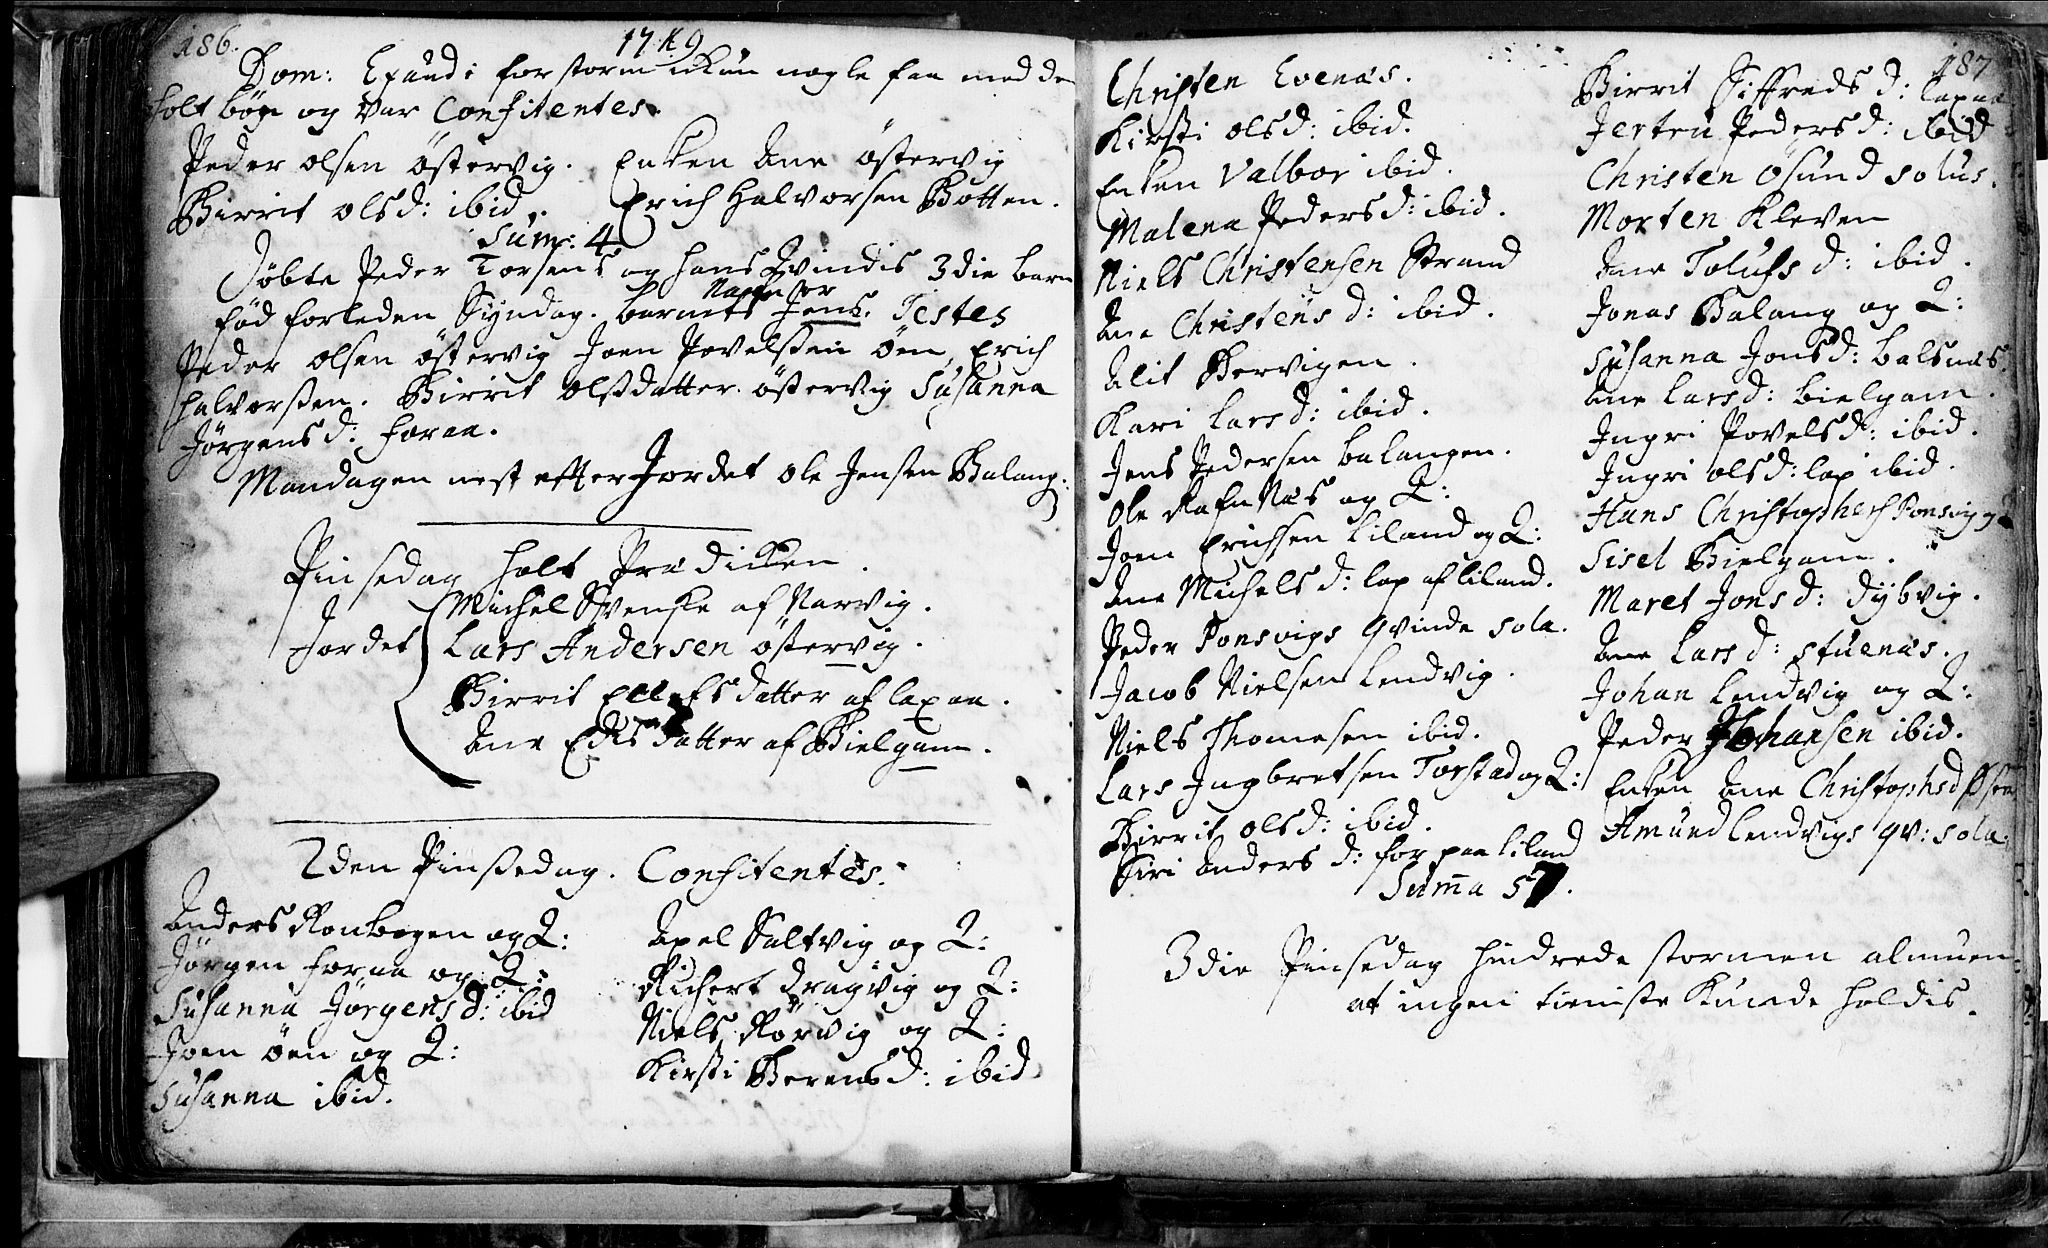 186.
1749
Dom: Exaudi for storm ikkun nogle faa med de
holt bøn og var Confitentes.
Peder olsen östervig. Enken Ane östervig
Birrit olsd: ibid. Erich Halvorsen Botten.
Sum: 4
Døbte Peder Torsens og hans Qvindis 3die barn
fød forleden Syndag. barnets Nafn er Jens. Testes
Peder olsen östervig Joen Povelssen öen, Erich
halvorssen. Birrit olssdatter östervig Susanna
Jørgensd: foraa.
Mandagen nest efter Jordet ole Jensen Balang:
Pinsedag holt Prædicken.
Michel Svenske af Narvig.
Jordet Lars Andersen östervig.
Birrit Ellefsdatter af laxaa.
Ane datter af Bielgam.
2den Pinssedag. Confitentes.
Anders Ronbogen og Q:
Jörgen foraa og Q:
Susanna Jørgensd: ibid
Joen öen og Q:
Susanna ibid.
Axel Saltvig og Q:
Richert dragvig og Q:
Niels Rörvig og Q:
Kirsti Berensd: ibid
187
Christen Evenæs.
Kirsti olsd: ibid.
Enken Valbor ibid.
Malena Pedersd: ibid.
Niels Christensen Strand
Ane Christensd: ibid.
Alit Bervigen.
Kari Larsd: ibid.
Jens Pedersen balangen.
Ole Rafnnæs og Q:
Joen Erichsen Liland og Q:
Ane Michelsd: lap af liland.
Peder Ponsvigs qvinde sola.
Jacob Nielsen Lendvig.
Niels Thomesen ibid.
Lars Ingbretsen Torstad og Q:
Birrit olsd: ibid.
Siri Andersd: for paa liland
Suma 57.
Birrit Siffredsd: laxaa
Jertru Pedersd: ibid
Christen Osund solus.
Morten Kleven
Ane Tolufsd: ibid.
Jonas Balang og Q:
Susanna Jonsd: balsnæs.
Ane Larsd: bielgam.
Ingri Povelsd: ibid.
Ingri olsd: lap ibid.
Hans Christophers Ponsvig
Sisel Bielgam.
Maret Jonsd: dybvig.
Ane Larsd: stuenæs.
Johan Lendvig og Q:
Peder Johansen ibid.
Enken Ane Christophsd
Amund Lendvigs qv: sola.
3die Pinsedag hindrede stormen almuen
at ingen tieniste kunde holdis.